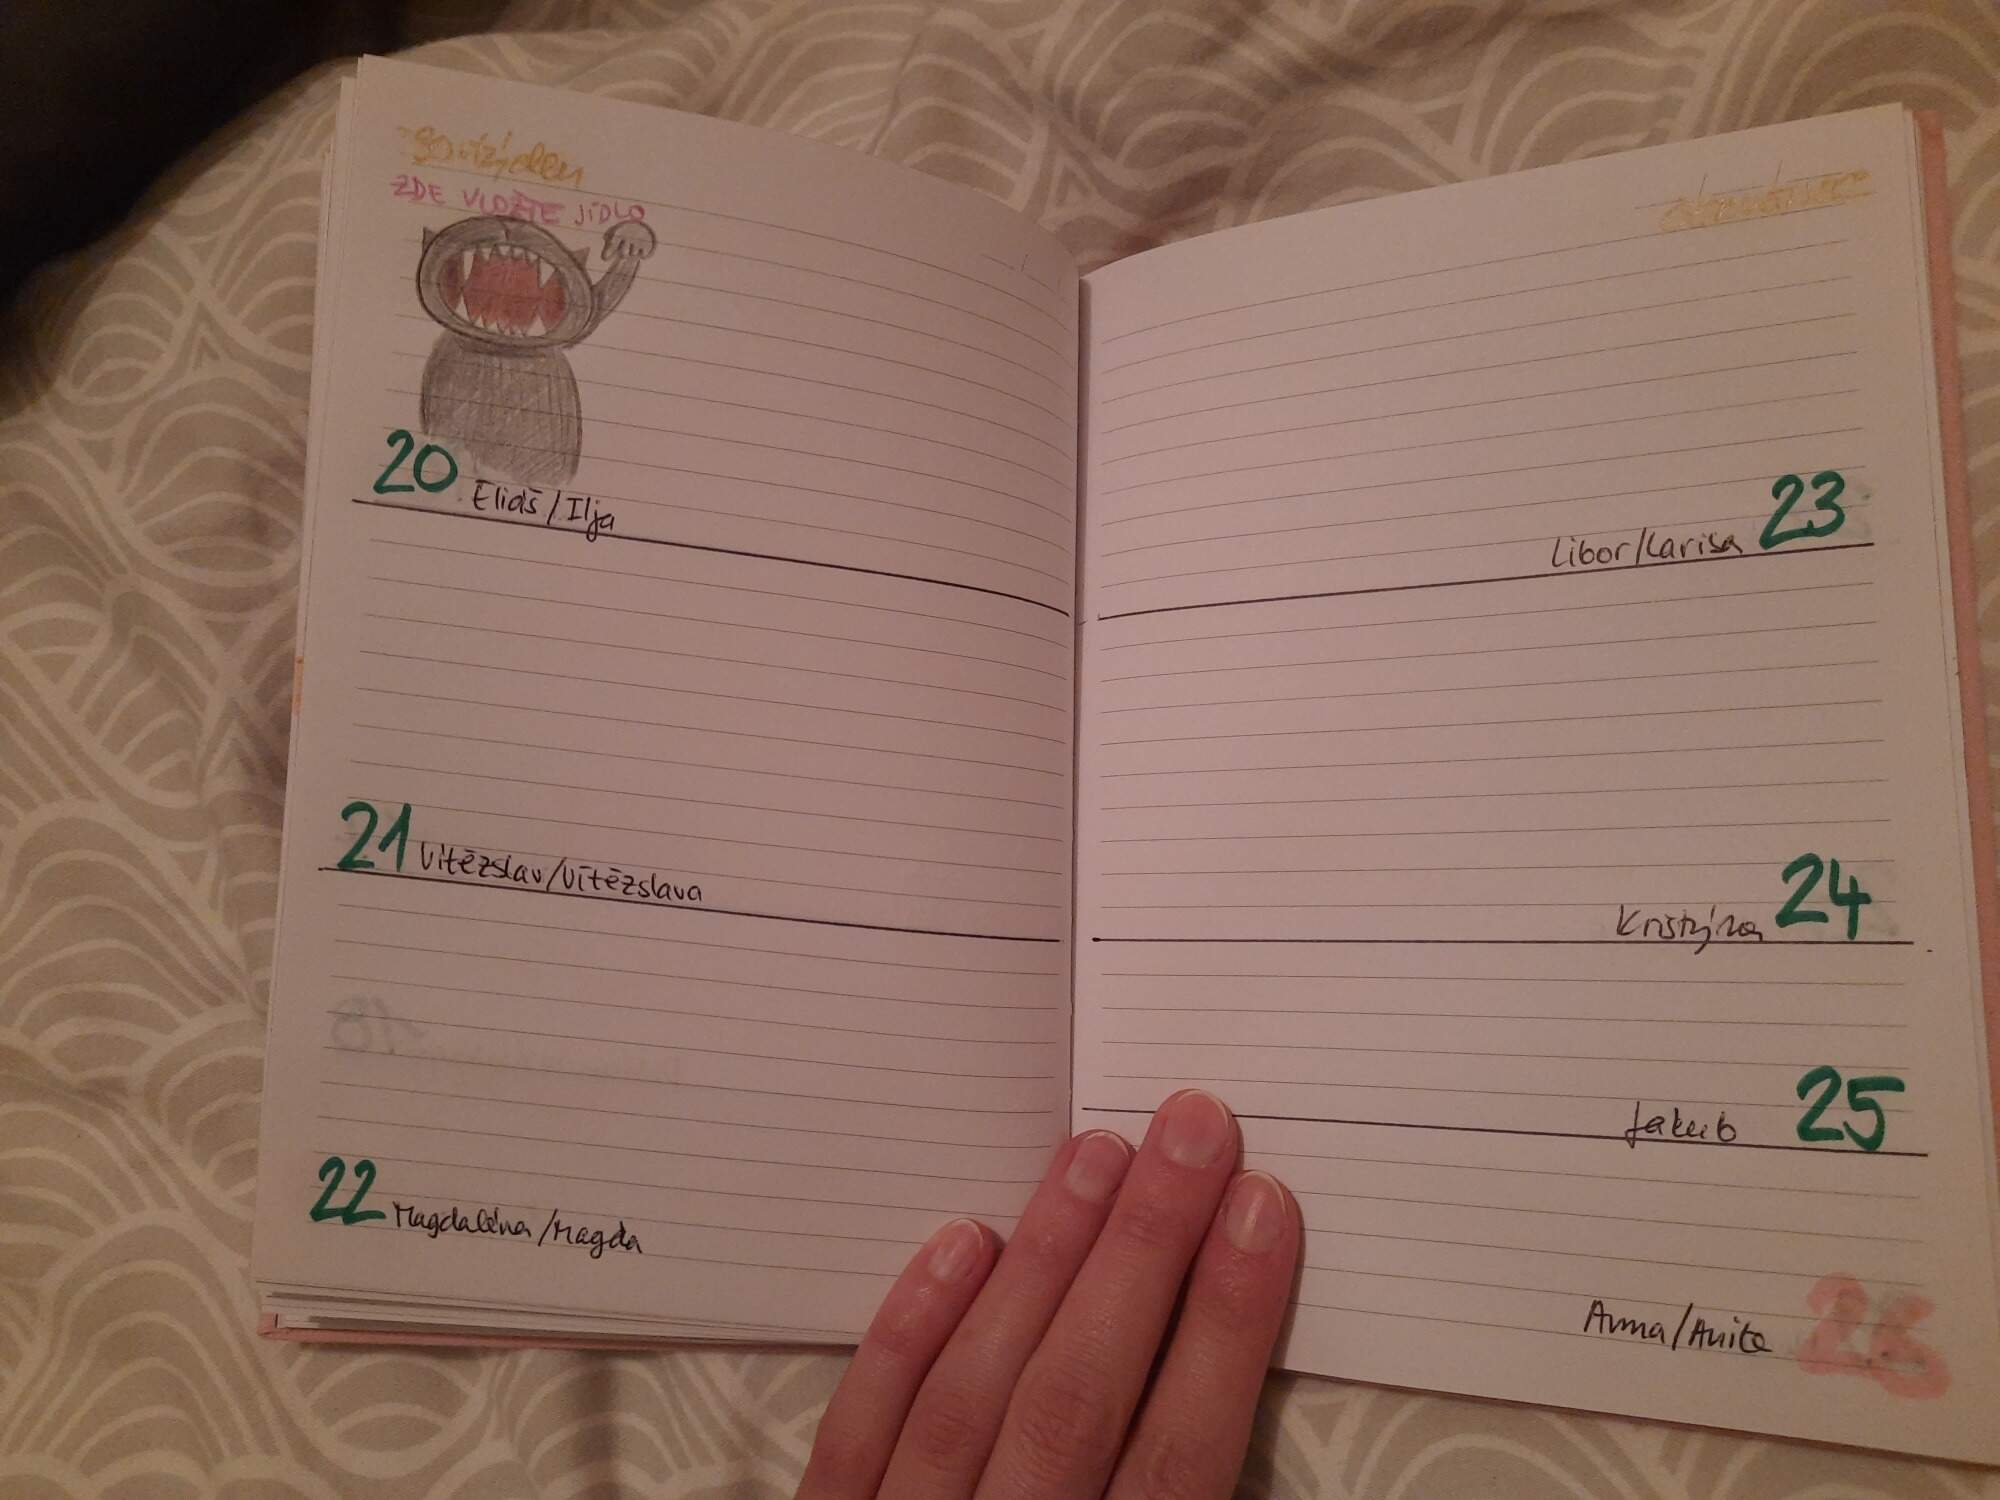 30. týden
ZDE VLOŽTE JÍDLO
20 Eliáš/Ilja
21 Vítězslav/Vítězslava
22 Magdaléna/Magda
Libor/Larisa 23
Kristýna 24
Jakub 25
Anna/Anita 26
18